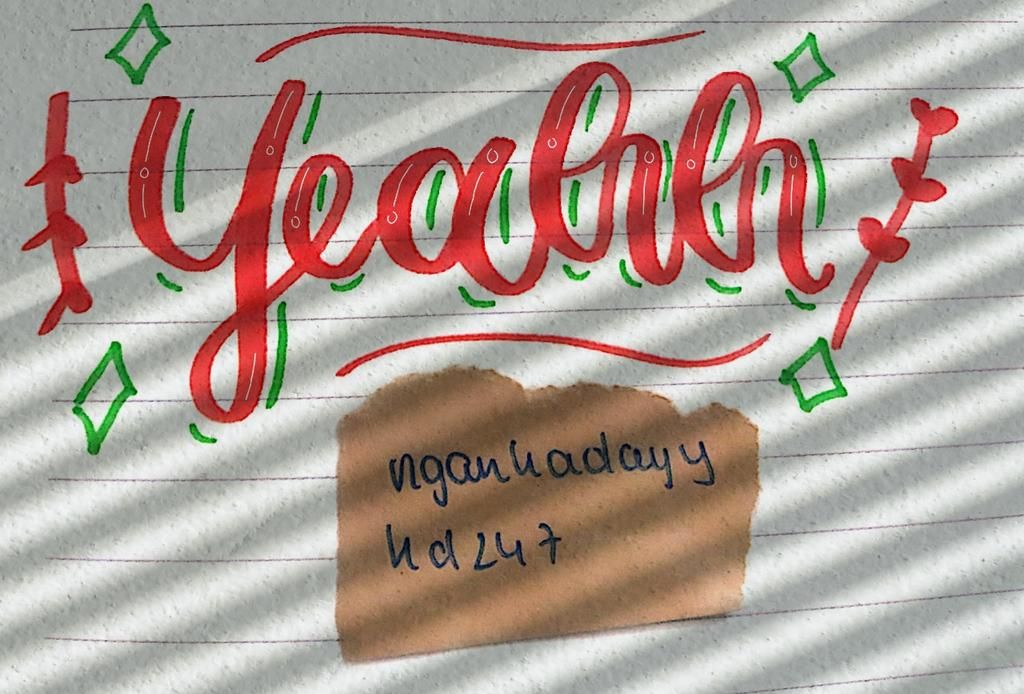 Yeahh
nganhadayy
hd247